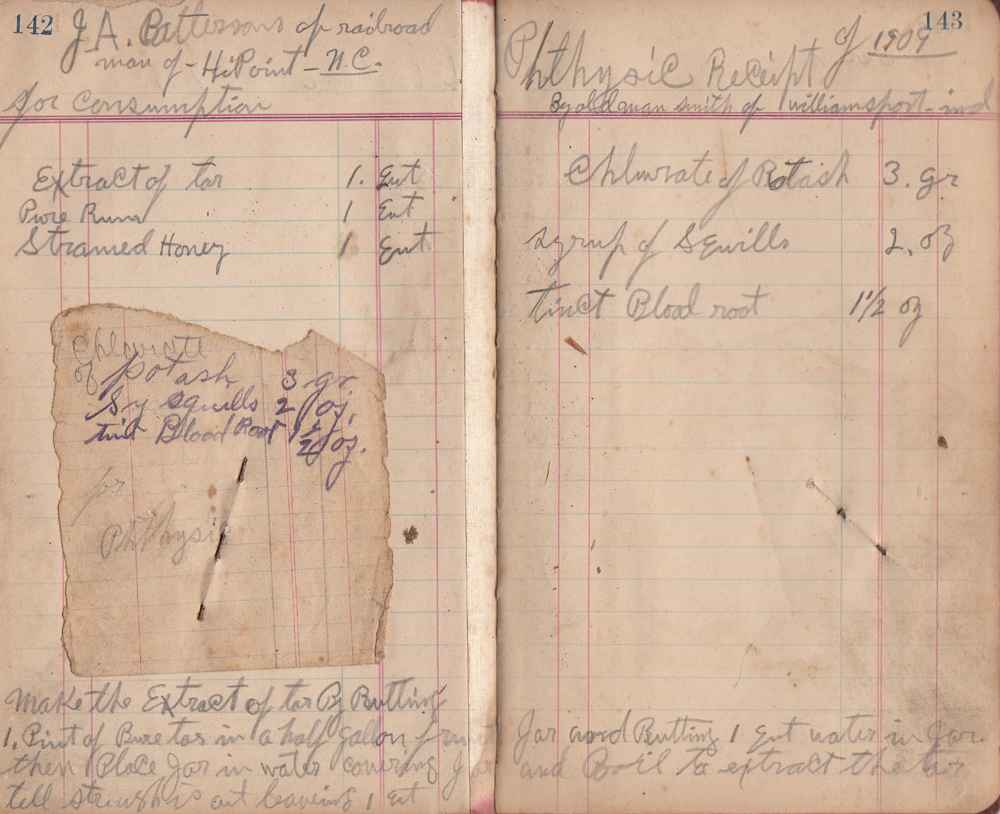 142
J. A. Pattersons of railroad
man of - Hi Point - N.C.
for Consumption
Extract of tar 1. Qut
Pure Rum 1 Qut
Stramed Honey 1 Qut
Chlowrate
of potash 3 gr.
Sy squills 2 oz.
tinct Blood Root 1 1/2 oz.
for
Phthysic
Make the Extract of tar By Putting
1. Pint of Pure tar in a half galon fruit
then Place Jar in water covering Jar
tell strength is out leaveing 1 Qut
143
Phthysic Receipt of 1909
By old man smith of williamsport - ind
Chlowrate of Potash 3. gr
syrup of Squills 2. oz
tinct Blood root 1 1/2 oz
Jar and Putting 1 Qut water in Jar
and Boil to extract the tar